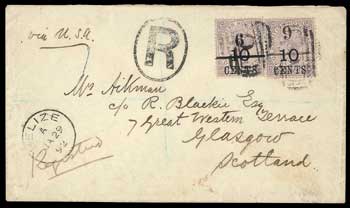 via U.S.A.
R
6
10
CENTS
9
10
CENTS
Mr Aikman
c/o R. Blackie Esq
7 Great Western Terrace
Glasgow
Scotland
LIZE
A
29
92
Registered